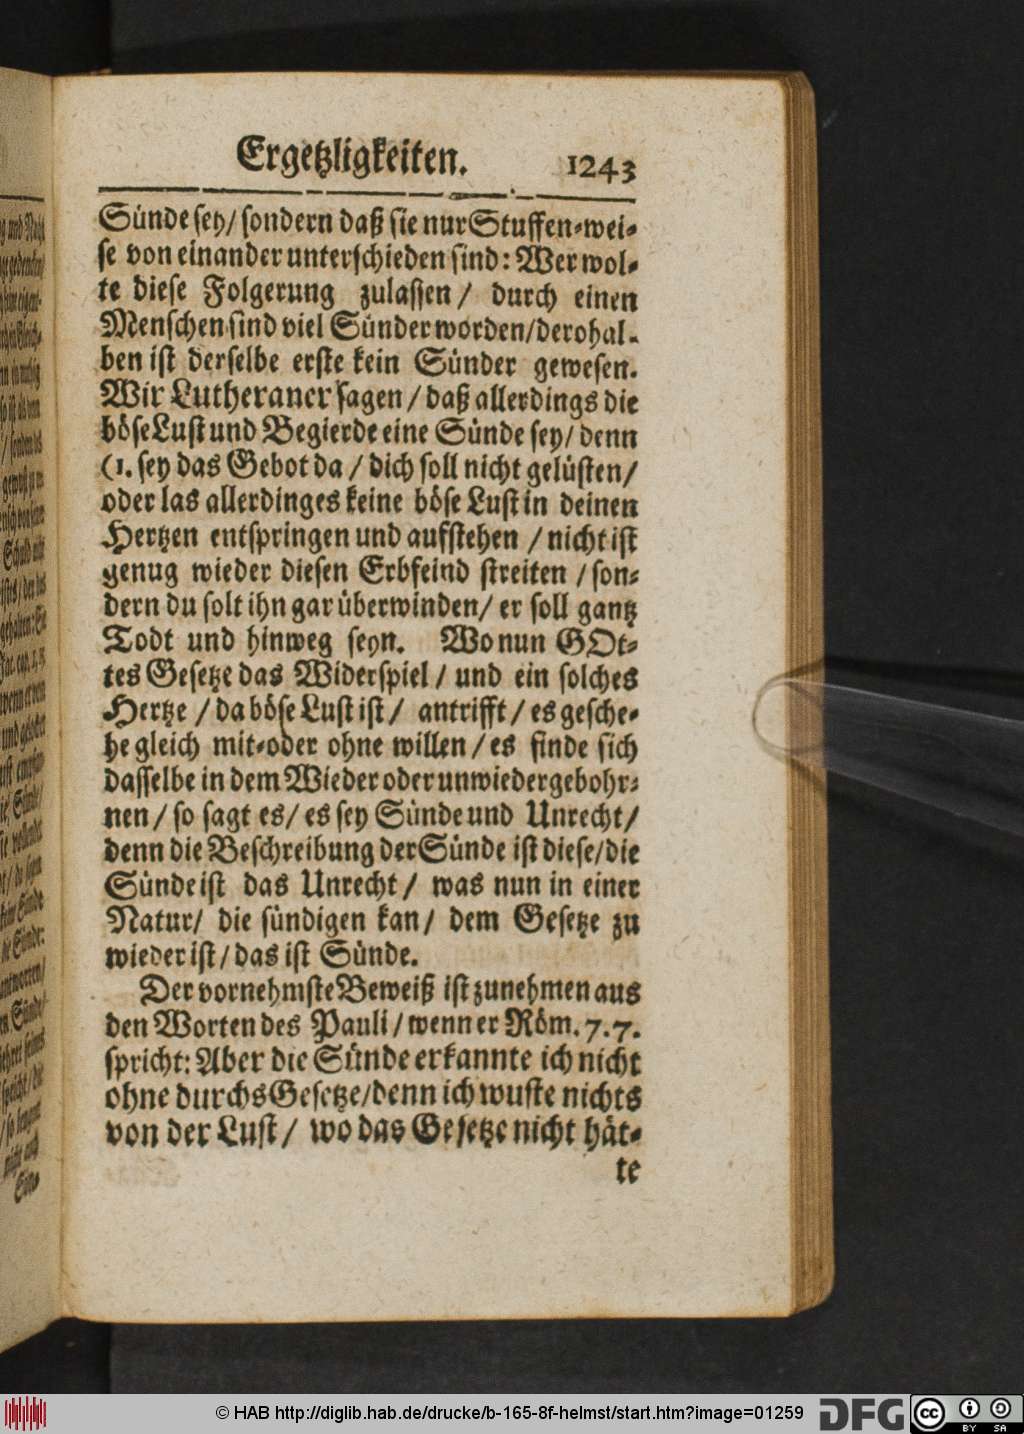 Ergetzligkeiten. 1243
Sünde sey/ sondern daß sie nur Stuffen-wei-
se von einander unterschieden sind: Wer wol-
te diese Folgerung zulassen/ durch einen
Menschen sind viel Sünder worden/derohal-
ben ist derselbe erste kein Sünder gewesen.
Wir Lutheraner sagen/ daß allerdings die
böse Lust und Begierde eine Sünde sey/ denn
(1. sey das Gebot da/ dich soll nicht gelüsten/
oder las allerdinges keine böse Lust in deinen
Hertzen entspringen und aufstehen/ nicht ist
genug wieder diesen Erbfeind streiten/ son-
dern du solt ihn gar überwinden/ er soll gantz
Todt und hinweg seyn. Wo nun GOt-
tes Gesetze das Widerspiel/ und ein solches
Hertze/ da böse Lust ist/ antrifft/ es gesche-
he gleich mit-oder ohne willen/ es finde sich
dasselbe in dem Wieder oder unwiedergebohr-
nen/ so sagt es/ es sey Sünde und Unrecht/
denn die Beschreibung der Sünde ist diese/die
Sünde ist das Unrecht/ was nun in einer
Natur/ die sündigen kan/ dem Gesetze zu
wieder ist/ das ist Sünde.
Der vornehmste Beweiß ist zunehmen aus
den Worten des Pauli/ wenn er Röm. 7. 7.
spricht: Aber die Sünde erkannte ich nicht
ohne durchs Gesetze/denn ich wuste nichts
von der Lust/ wo das Gesetze nicht hät-
te
© HAB http://diglib.hab.de/drucke/b-165-8f-helmst/start.htm?image=01259
DFG
cc
BY SA